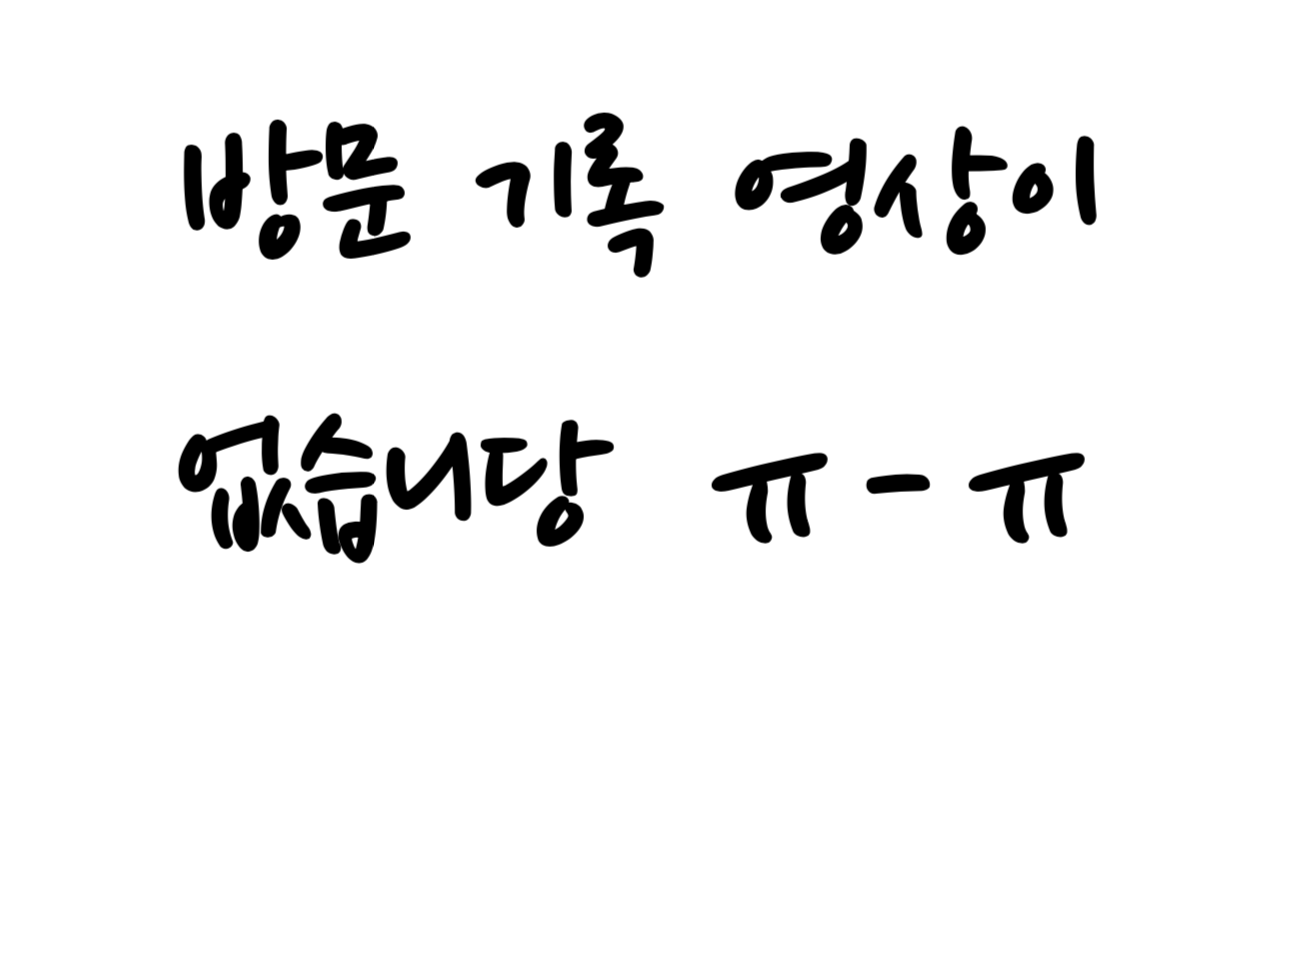 방문 기록 영상이
없습니당 ㅠ-ㅠ